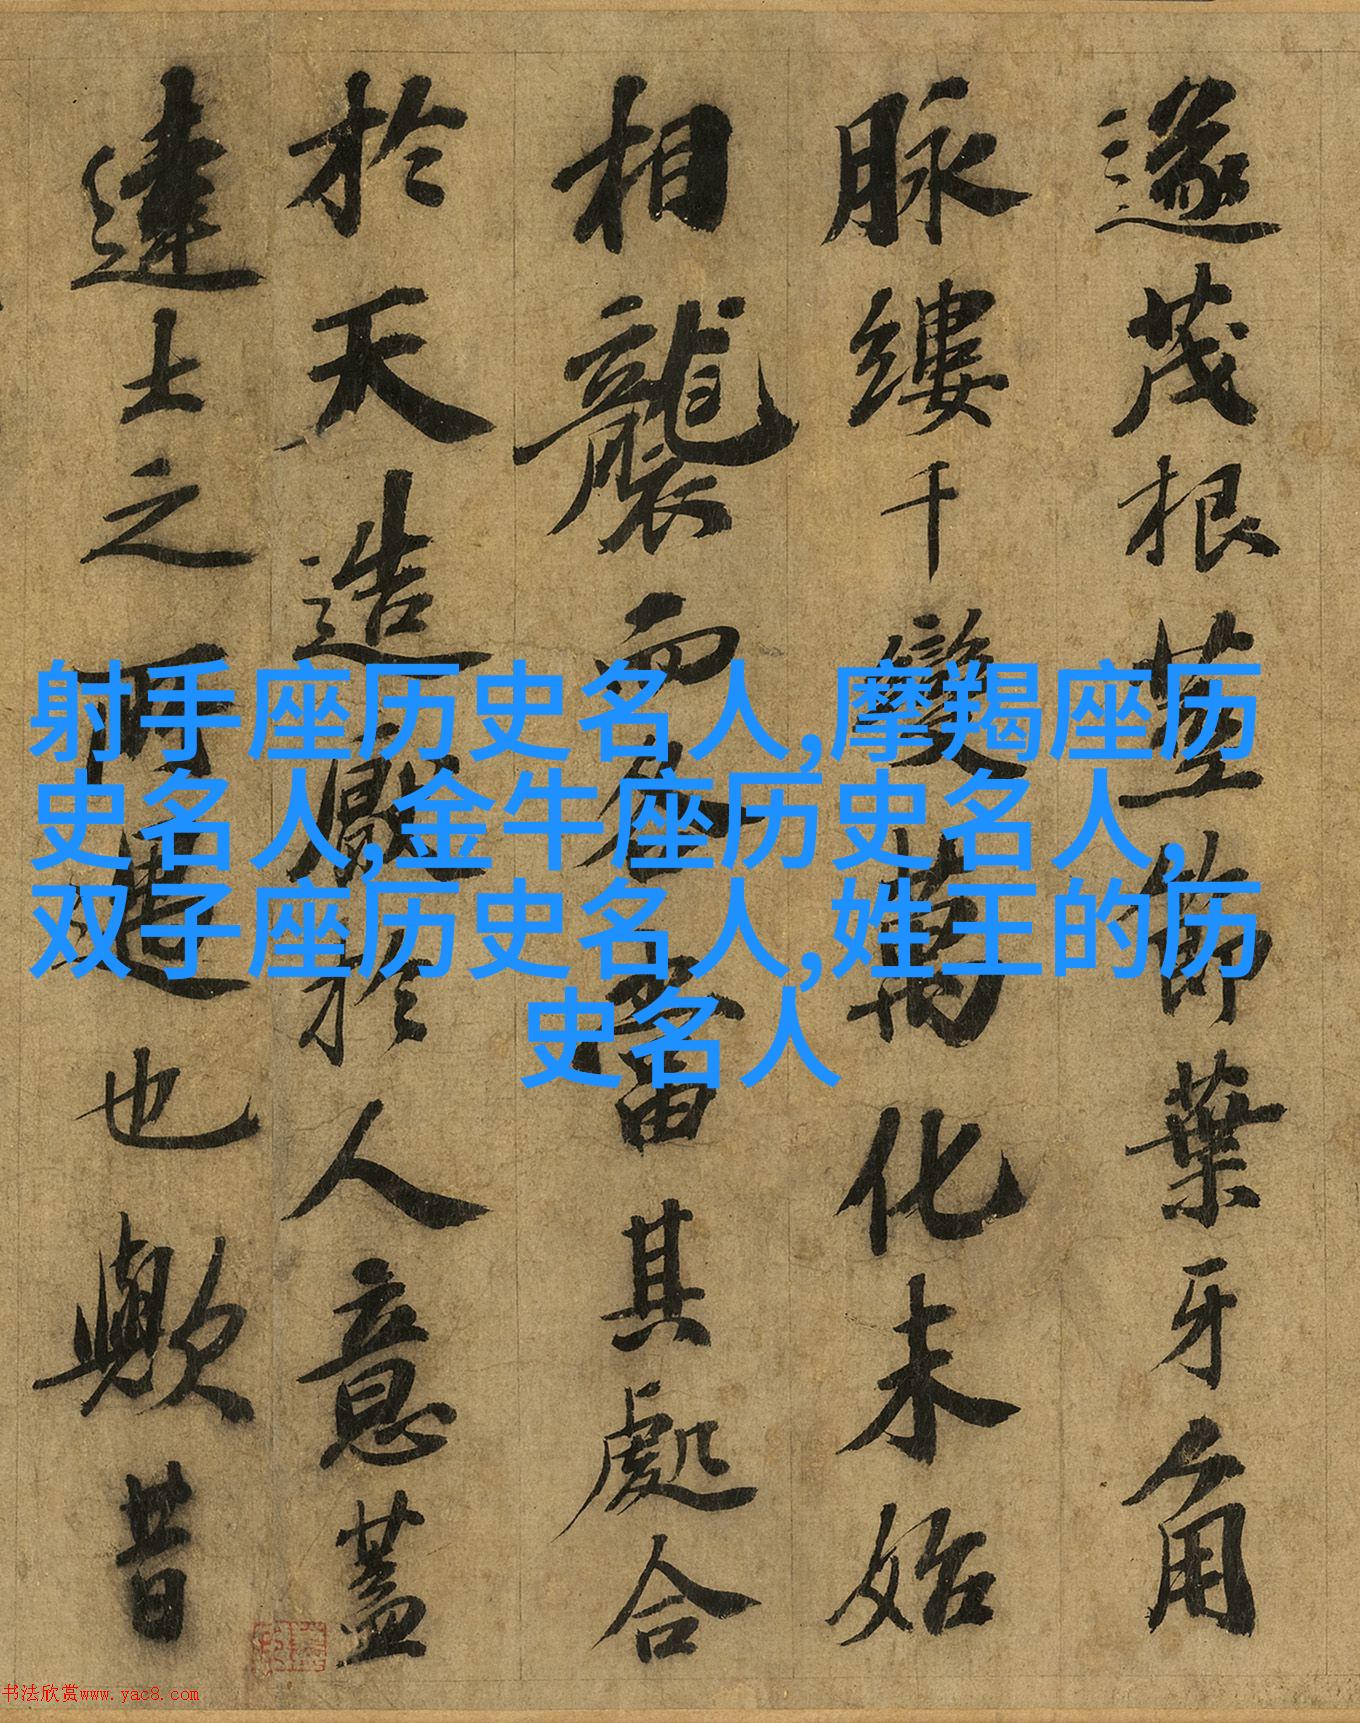 遂茂根莖節葉牙角
脉縷千變萬化未始
相襲而各當其處合
於天造厭於人意蓋
達士之所遇也歟昔
射手座历史名人,摩羯座历
史名人,金牛座历史名人,
双子座历史名人,姓王的历
史名人
书法欣赏www.yac8.com